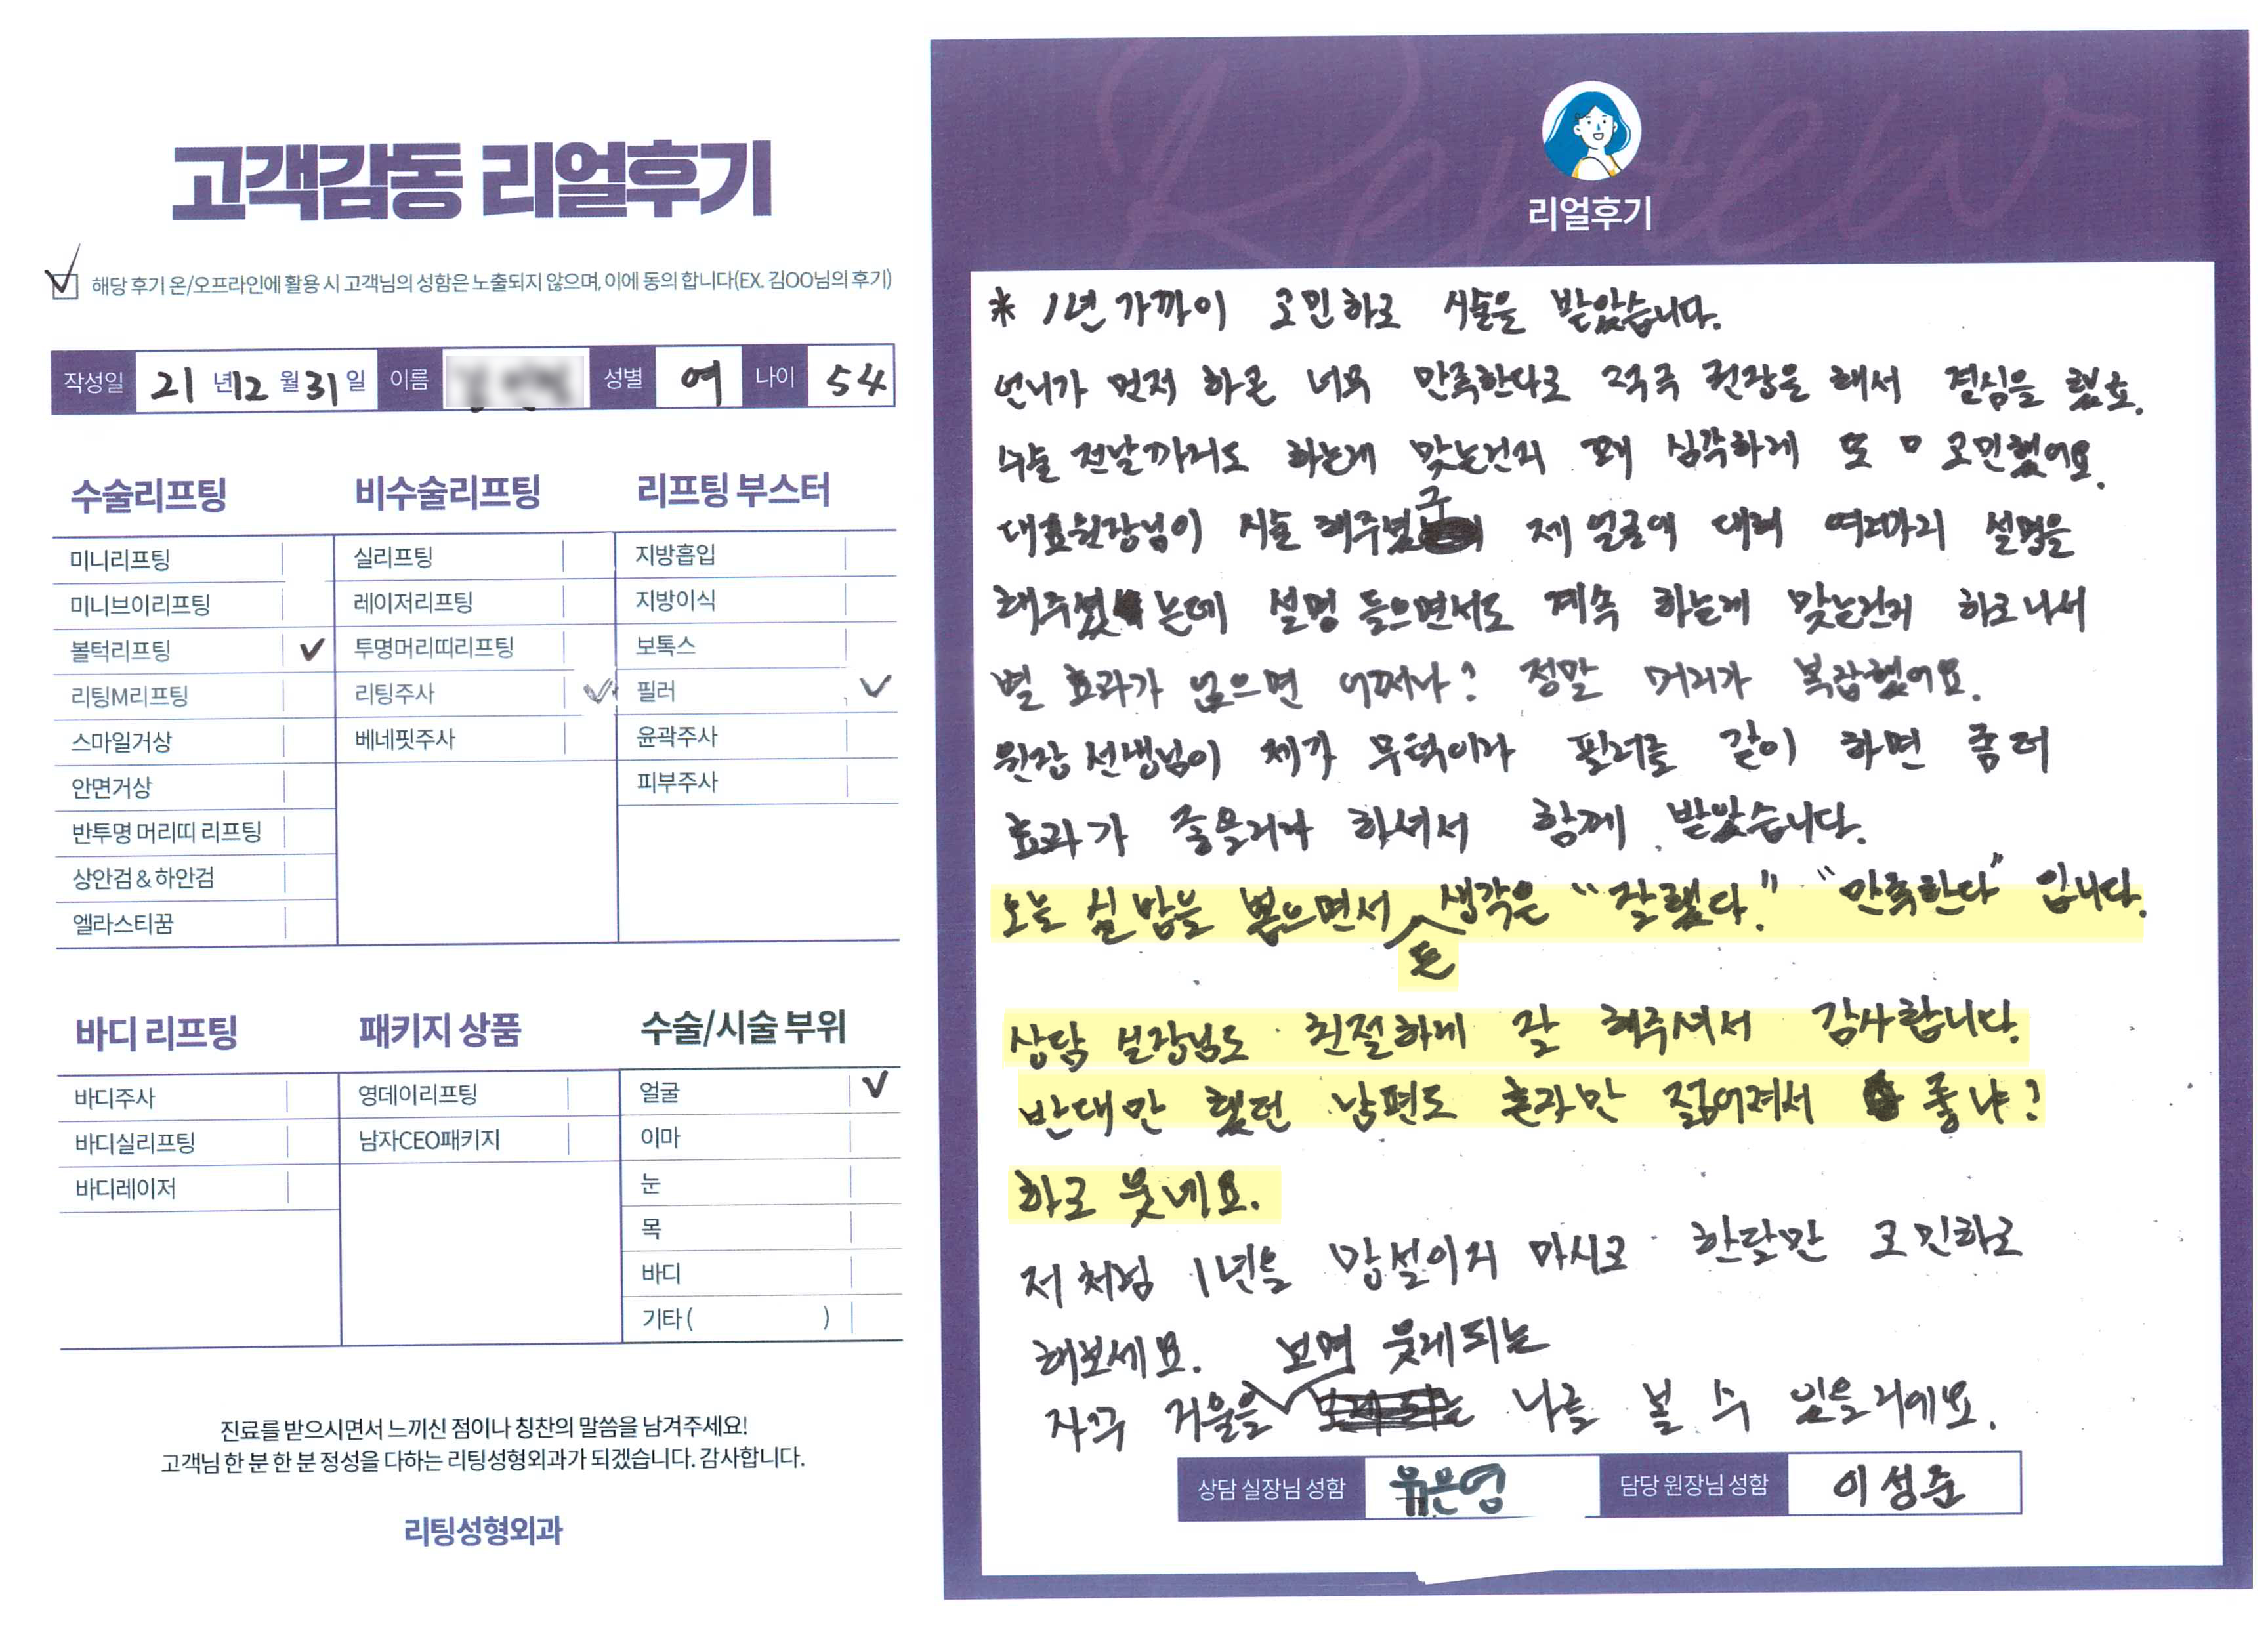 고객감동 리얼후기
해당 후기 온/오프라인에 활용 시 고객님의 성함은 노출되지 않으며, 이에 동의 합니다(EX. 김OO님의 후기)
작성일 21 년 12 월 31 일 이름 성별 여 나이 54
수술리프팅
미니리프팅
미니브이리프팅
볼턱리프팅
리팅M리프팅
스마일거상
안면거상
반투명 머리띠 리프팅
상안검 & 하안검
엘라스티꿈
비수술리프팅
실리프팅
레이저리프팅
투명머리띠리프팅
리팅주사
베네핏주사
리프팅 부스터
지방흡입
지방이식
보톡스
필러
윤곽주사
피부주사
바디 리프팅
바디주사
바디실리프팅
바디레이저
패키지 상품
영데이리프팅
남자CEO패키지
수술/시술 부위
얼굴
이마
눈
목
바디
기타 ( )
진료를 받으시면서 느끼신 점이나 칭찬의 말씀을 남겨주세요!
고객님 한 분 한 분 정성을 다하는 리팅성형외과가 되겠습니다. 감사합니다.
리팅성형외과
Review
리얼후기
* 1년 가까이 고민하고 시술을 받았습니다.
언니가 먼저 하곤 너무 만족한다고 적극 권장을 해서 결심을 했죠.
수술 전날까지도 하는게 맞는건지 꽤 심각하게 또 고민했어요.
대표원장님이 시술 해주셨구 제 얼굴에 대해 여러마리 설명을
해주셨는데 설명 들으면서도 계속 하는게 맞는건지 하고나서
별 효과가 없으면 어쩌나? 정말 머리가 복잡했어요.
원장 선생님이 제가 무턱이라 필러를 같이 하면 좀 더
효과가 좋을거라 하셔서 함께 받았습니다.
오늘 실밥을 뽑으면서 든 생각은 "잘했다." "만족한다" 입니다.
상담 실장님도 친절하게 잘 해주셔서 감사합니다.
반대만 했던 남편도 혼자만 젊어져서 좋냐?
하고 웃네요.
저처럼 1년을 망설이지 마시고 한달만 고민하고
해보세요.
자꾸 거울을 보면 웃게되는 나를 볼 수 있을거예요.
상담 실장님 성함 유은영 담당 원장님 성함 이성준